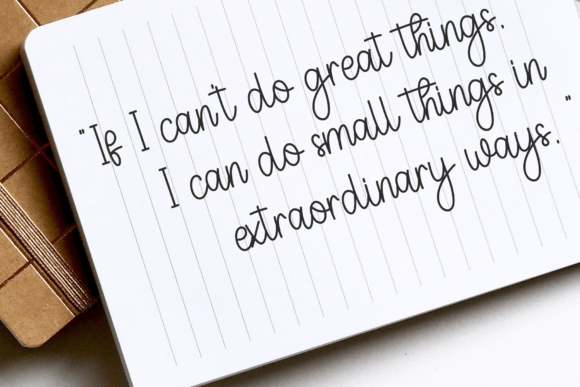 "If I can't do great things.
I can do small things in
extraordinary ways."